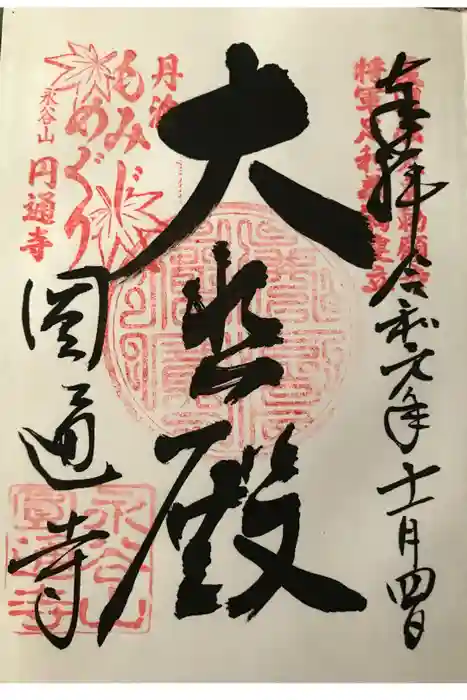 奉拝 令和元年十一月四日
将軍足利義満建立
大悲殿
丹波
もみじめぐり
永谷山 円通寺
圓通寺
永谷山
圓通寺